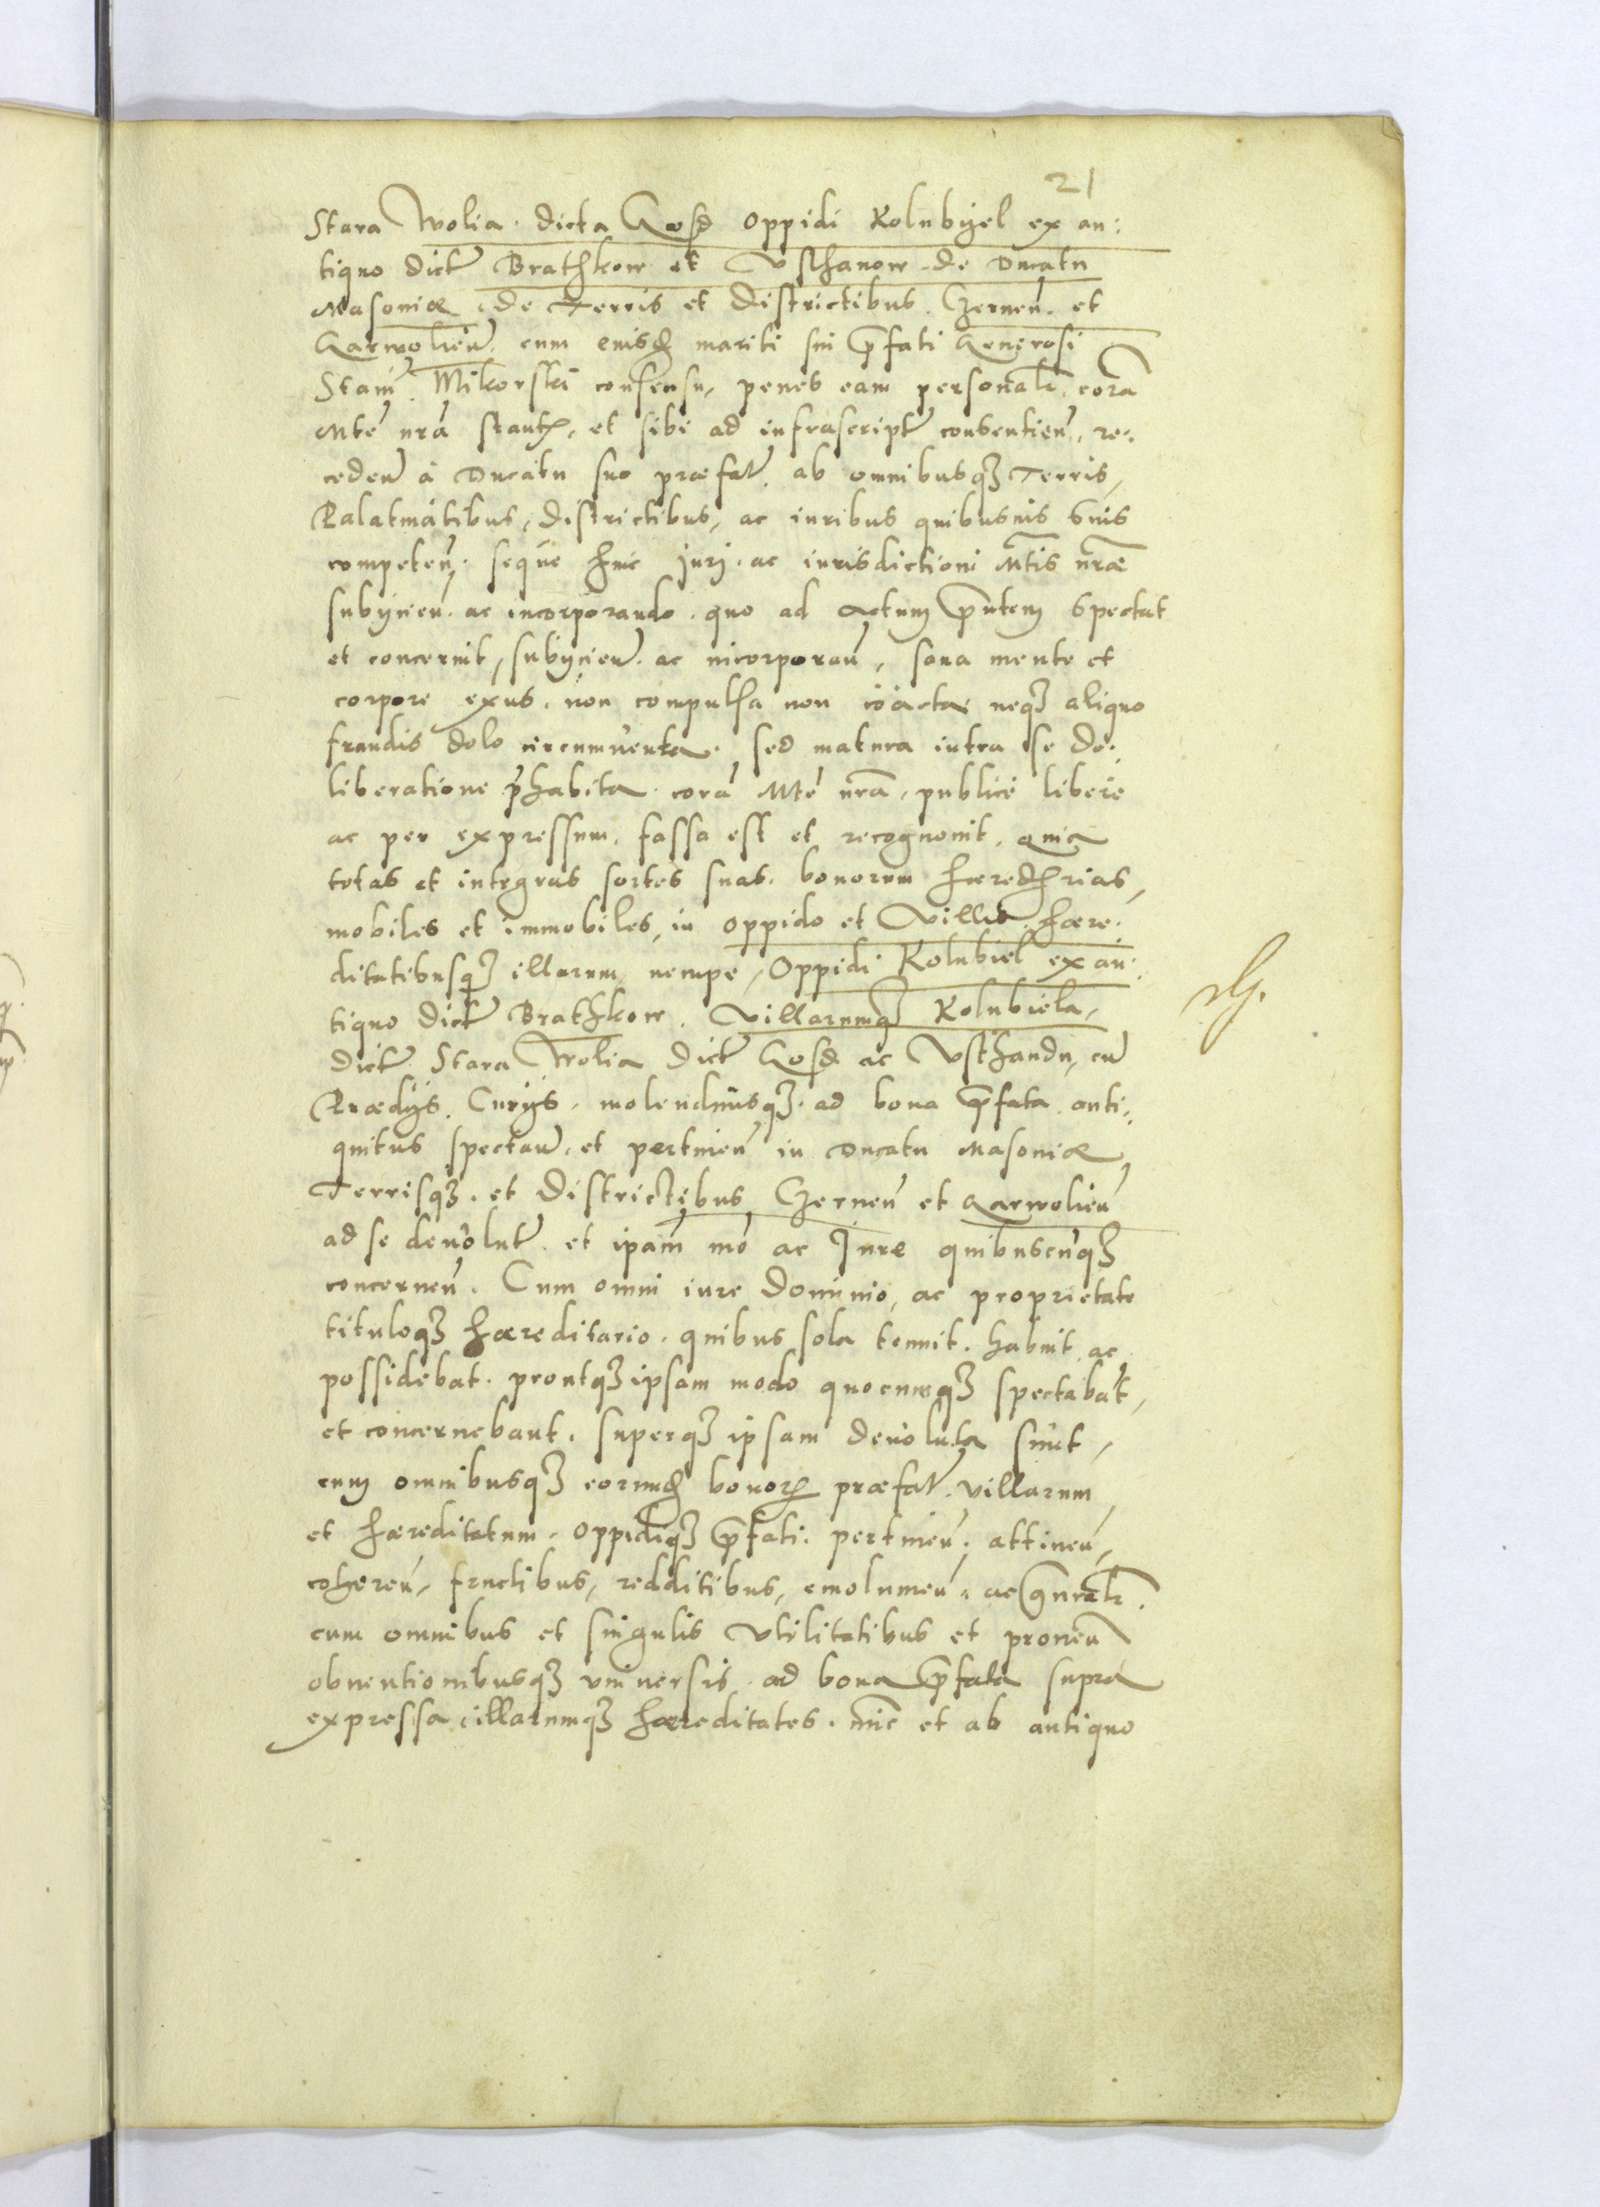 21
Stara Wolia dicta Gosd oppidi Kolubyel ex an:
tiquo dict Brathkow et Vsthanow de Ducatu
Masoniæ de Terris et districtibus Czernen. et
Garwolien. cum eiusd mariti sui pfati Generosi
Stani Mikorski consensu, penes eam personalr corã
Mte nrã stantz, et sibi ad infrascript consentien, re:
ceden à Ducatu suo præfat. ab omnibusqz Terris,
Palatinatibus, districtibus, ac iuribus quibusuis suis
competen. seque huic juri ac iurisdictioni Mtis nræ
subijcien. ac incorporando quo ad actum pntem spectat
et concernit, subijcien. ac incorporan, sana mente et
corpore exns. non compulsa non coacta neqz aliquo
fraudis dolo circumuenta. sed matura intra se de:
liberatione phabita corã Mte nrã, publicè liberè
ac per expressum, fassa est et recognouit, quia
totas et integras sortes suas bonorum hæredrias,
mobiles et immobiles, in oppido et villis hære:
ditatibusqz illarum, nempe, Oppidi Kolubiel ex an:
tiquo dict Brathkow, villarumqz Kolubiela,
dict Stara Wolia dict Gosd ac Vsthandu, cu
Prædijs, Curijs, molendinisqz ad bona pfata anti:
quitus spectan, et pertinen in Ducatu Masoniæ
Terrisqz. et districtibus Czernen et Garwolien
ad se deuolut et ipam mo ac Jure quibuscuqz
concernen. Cum omni iure dominio, ac proprietate
tituloqz hæreditario, quibus sola tenuit. habuit ac
possidebat. proutqz ipsam modo quocumqz spectabat,
et concernebant. superqz ipsam deuoluta sunt,
cum omnibusqz eorumd bonorz præfat. villarum,
et hæreditatum, oppidiqz pfati. pertinen. attinen,
coheren, fructibus, redditibus, emolumen, ac gnralr.
cum omnibus et singulis vtilitatibus et prouen
obuentionibusqz vniuersis ad bona pfata supra
expressa illarumqz hæreditates. nunc et ab antiquo